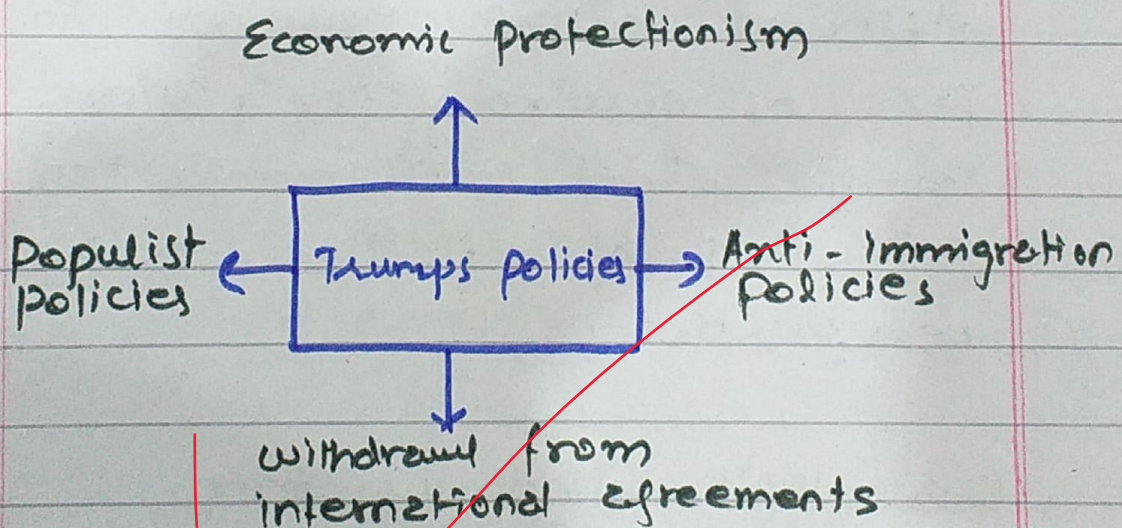 Economic protectionism
Populist
policies
Trumps policies
Anti-Immigration
policies
withdrawl from
international agreements